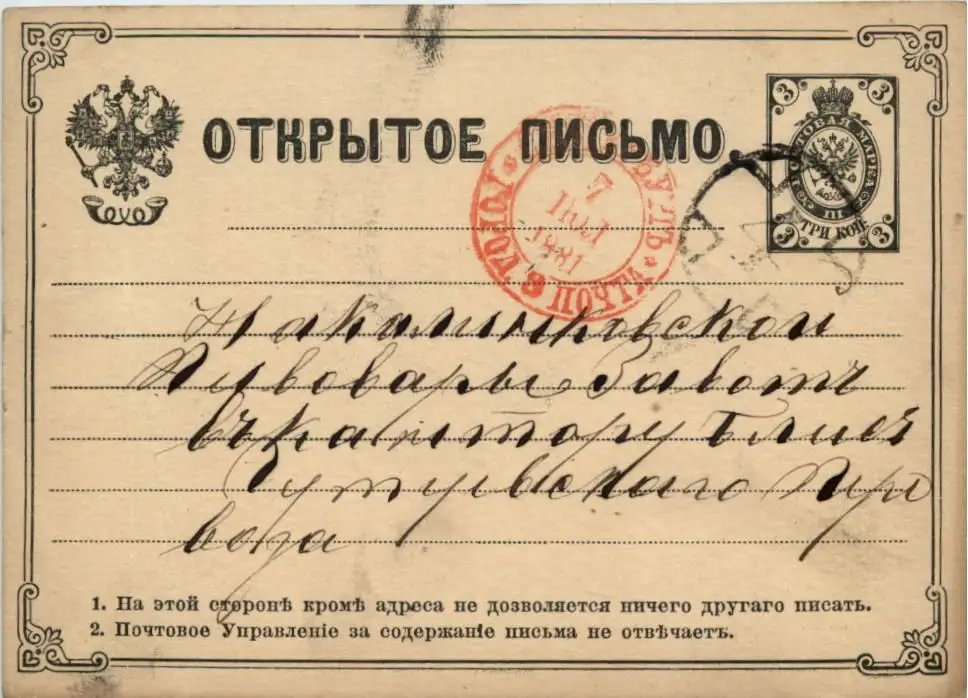 ОТКРЫТОЕ ПИСЬМО
3 3
ПОЧТОВАЯ МАРКА
ТРИ КОП.
3 3
7
ІЮЛ
1881
ГОРОД. ПОЧТА
На Калинковской
Пивовары Завотъ
въ Кантору Близъ
Гутуевскаго Пере
воза
1. На этой сторонѣ кромѣ адреса не дозволяется ничего другаго писать.
2. Почтовое Управленіе за содержаніе письма не отвѣчаетъ.